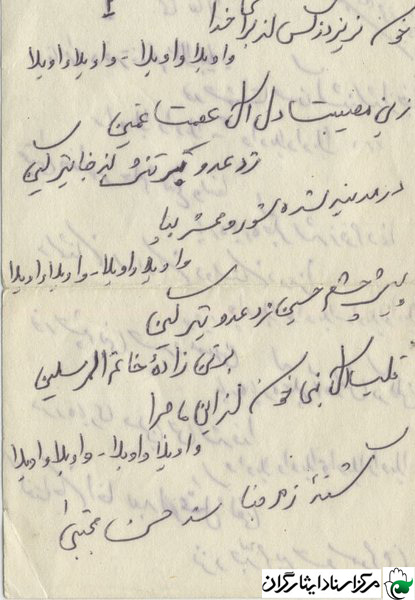 خون بریزد زکس لذبرای خدا
واویلا واویلا - واویلا واویلا
زین مصیبت دل اهل عصمت غمین
زد عدو بر تنش لز جفا تیرکین
در مدینه شده شور و محشر بپا
واویلا واویلا - واویلا واویلا
پیش چشم حسین زد عدو تیرکین
بر تن زادهٔ خاتم المرسلین
قلب اهل نبی خون لزاین ماجرا
واویلا واویلا - واویلا واویلا
کشتهٔ زهر جفا شد حسن مجتبی
مرکز اسناد ایثارگران